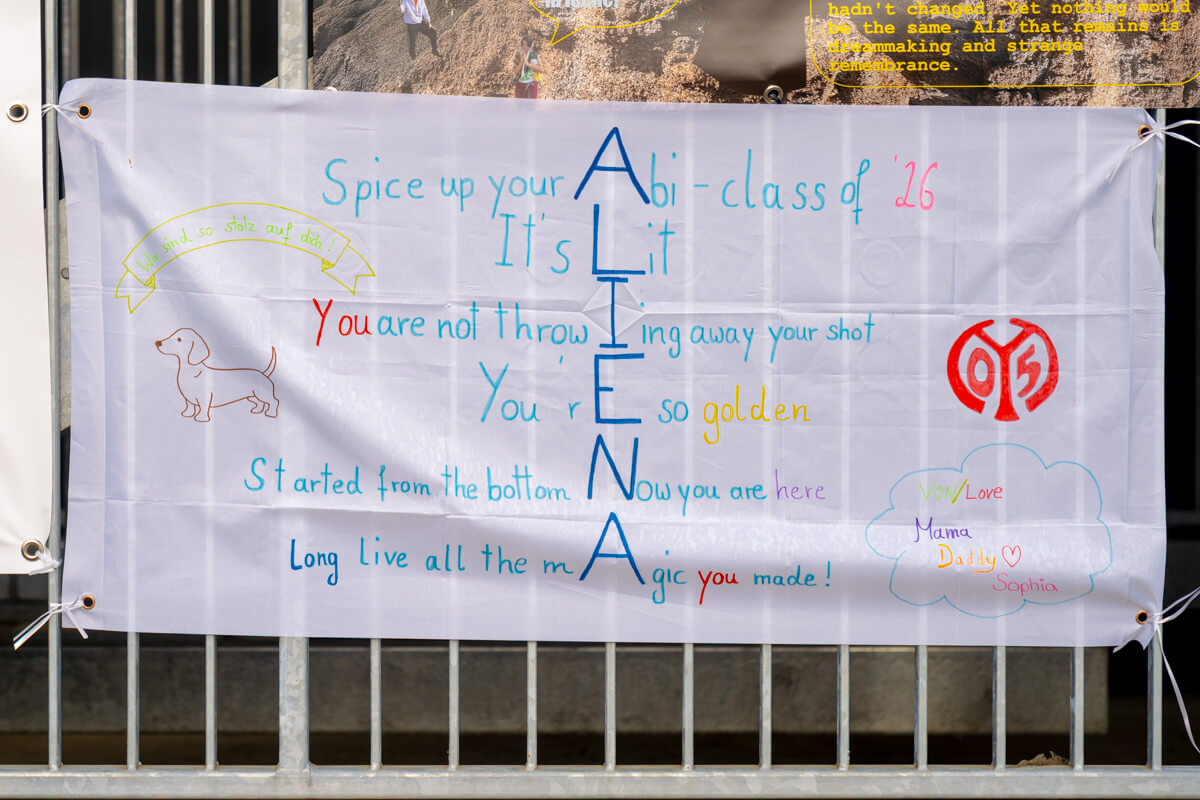 hadn't changed. Yet nothing would
be the same. All that remains is
dreammaking and strange
remembrance.
Spice up your Abi - class of '26
It's Lit
Wir sind so stolz auf dich!
You are not throwIing away your shot
You'rE so golden
05
Started from the bottom Now you are here
Long live all the mAgic you made!
Von/Love
Mama
Daddy ♡
Sophia